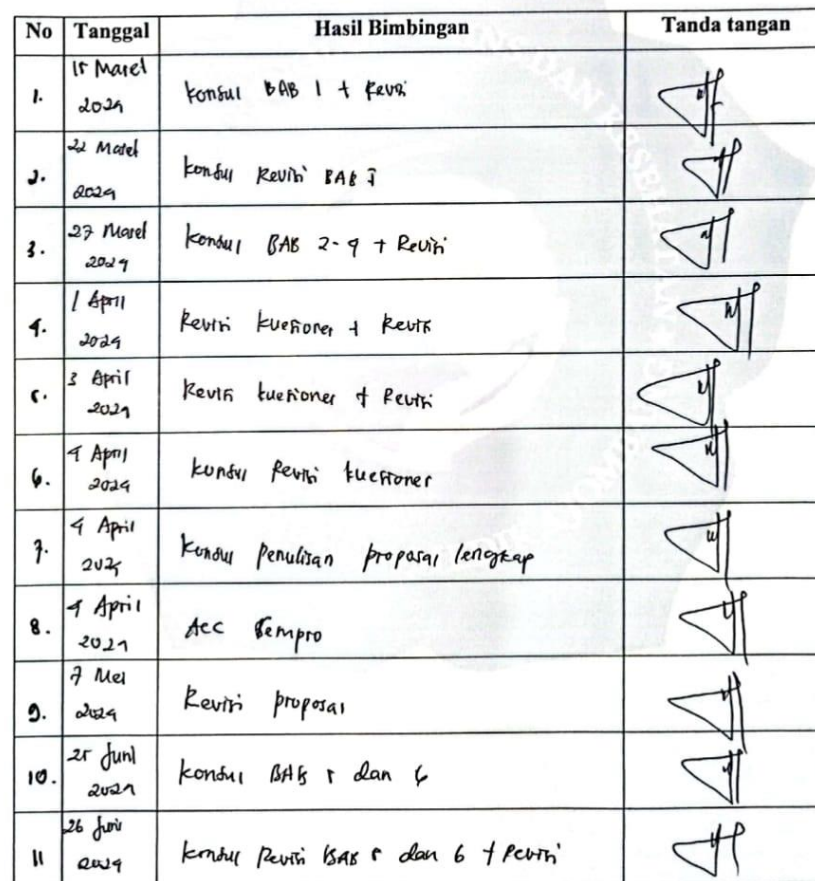 No Tanggal Hasil Bimbingan Tanda tangan
1. 15 Maret 2024 Konsul BAB 1 + Revisi
2. 22 Maret 2024 Konsul Revisi BAB I
3. 27 Maret 2024 Konsul BAB 2-4 + Revisi
4. 1 April 2024 Revisi kuesioner + Revisi
5. 3 April 2024 Revisi kuesioner + Revisi
6. 4 April 2024 Konsul Revisi kuesioner
7. 4 April 2024 Konsul penulisan proposal lengkap
8. 4 April 2024 Acc Sempro
9. 7 Mei 2024 Revisi proposal
10. 25 Juni 2024 Konsul BAB 5 dan 6
11 26 Juni 2024 Konsul Revisi BAB 5 dan 6 + Revisi